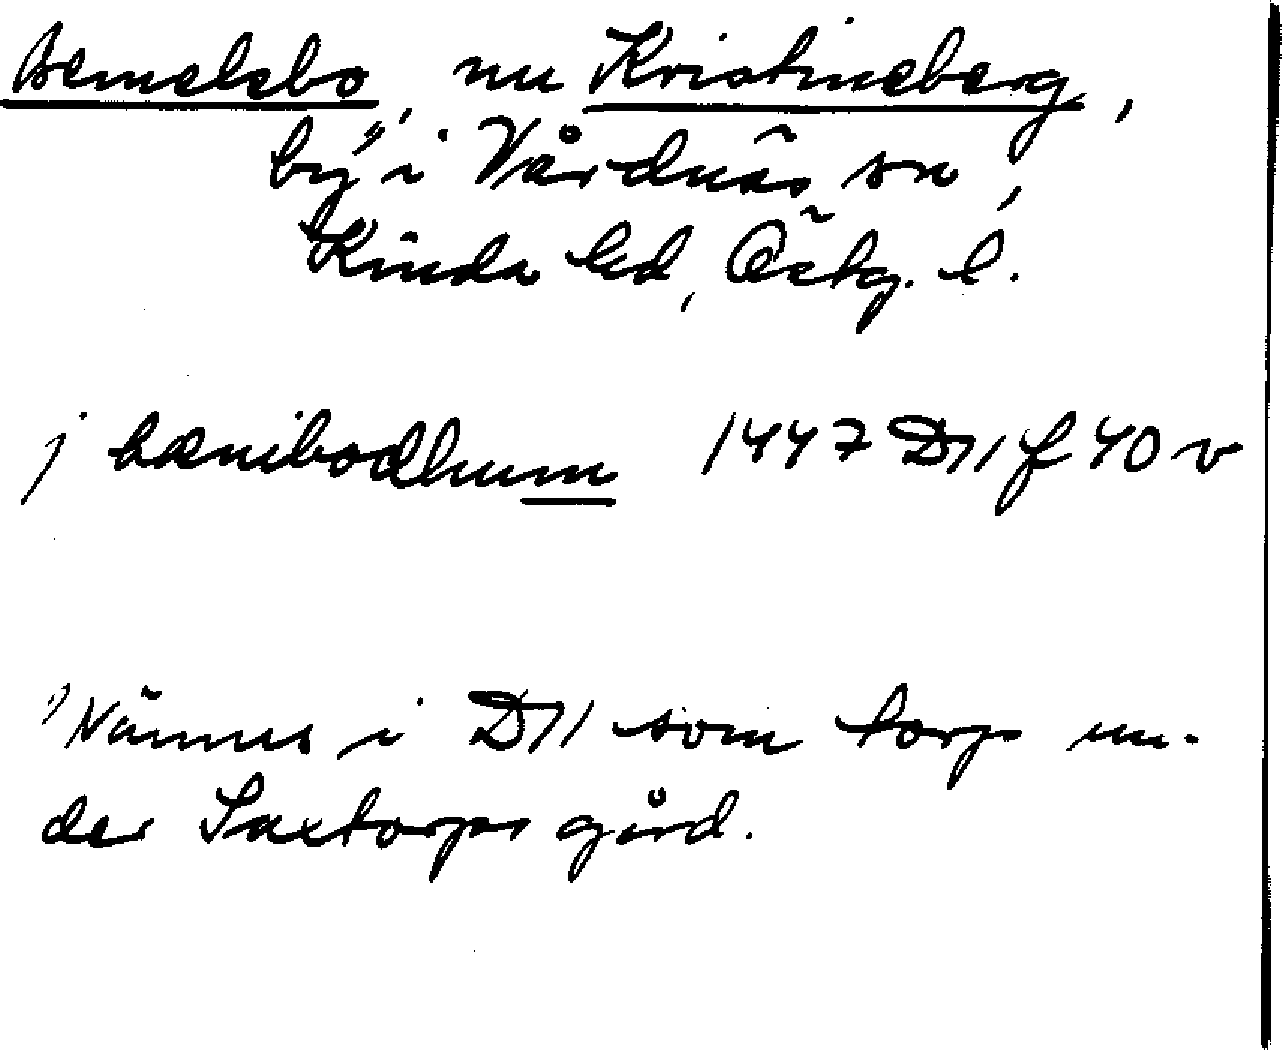 Bemelsbo, nu Kristineberg,
by¹⁾ i Vårdnäs sn,
Kinda hd, Östg. l.
j bænibodhum 1447 D11 f 40 v
¹⁾ Nämnes i D11 som torp un-
der Saxtorps gård.